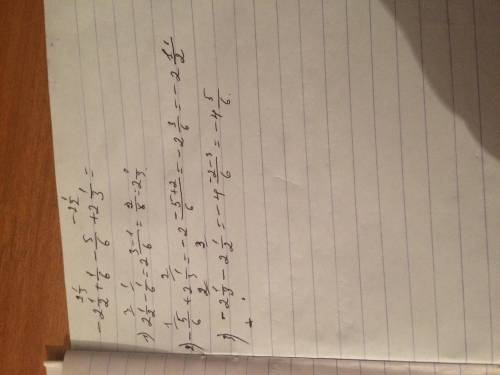 -2 1/3 -2 1/2
-2 1/2 + 1/6 - 5/6 + 2 1/3 =
1) 2 1/2 - 1/6 = 2 3-1/6 = 2/6 = 2 1/3
2) - 5/6 + 2 1/3 = -2 -5+2/6 = -2 3/6 = -2 1/2
3) -2 1/3 - 2 1/2 = -4 -2-3/6 = -4 5/6.